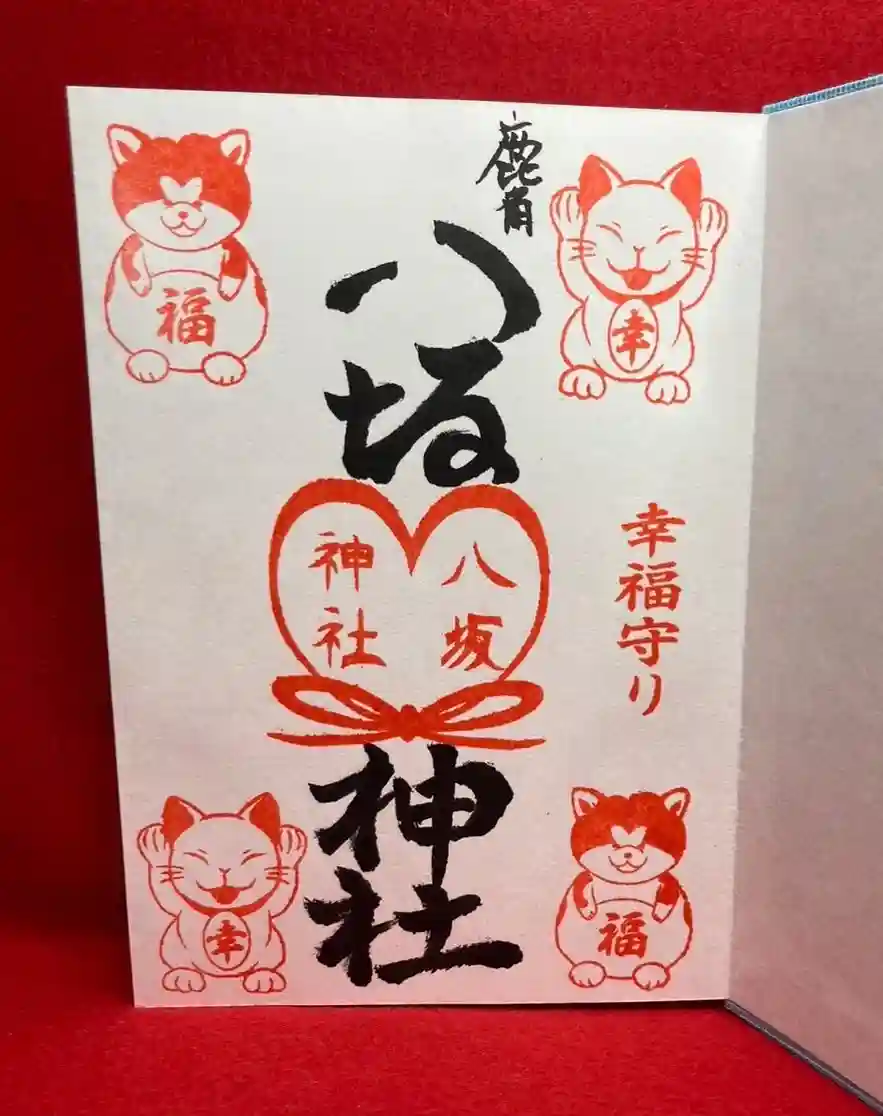 鹿角
八坂神社
八坂
神社
幸福守り
福
幸
幸
福